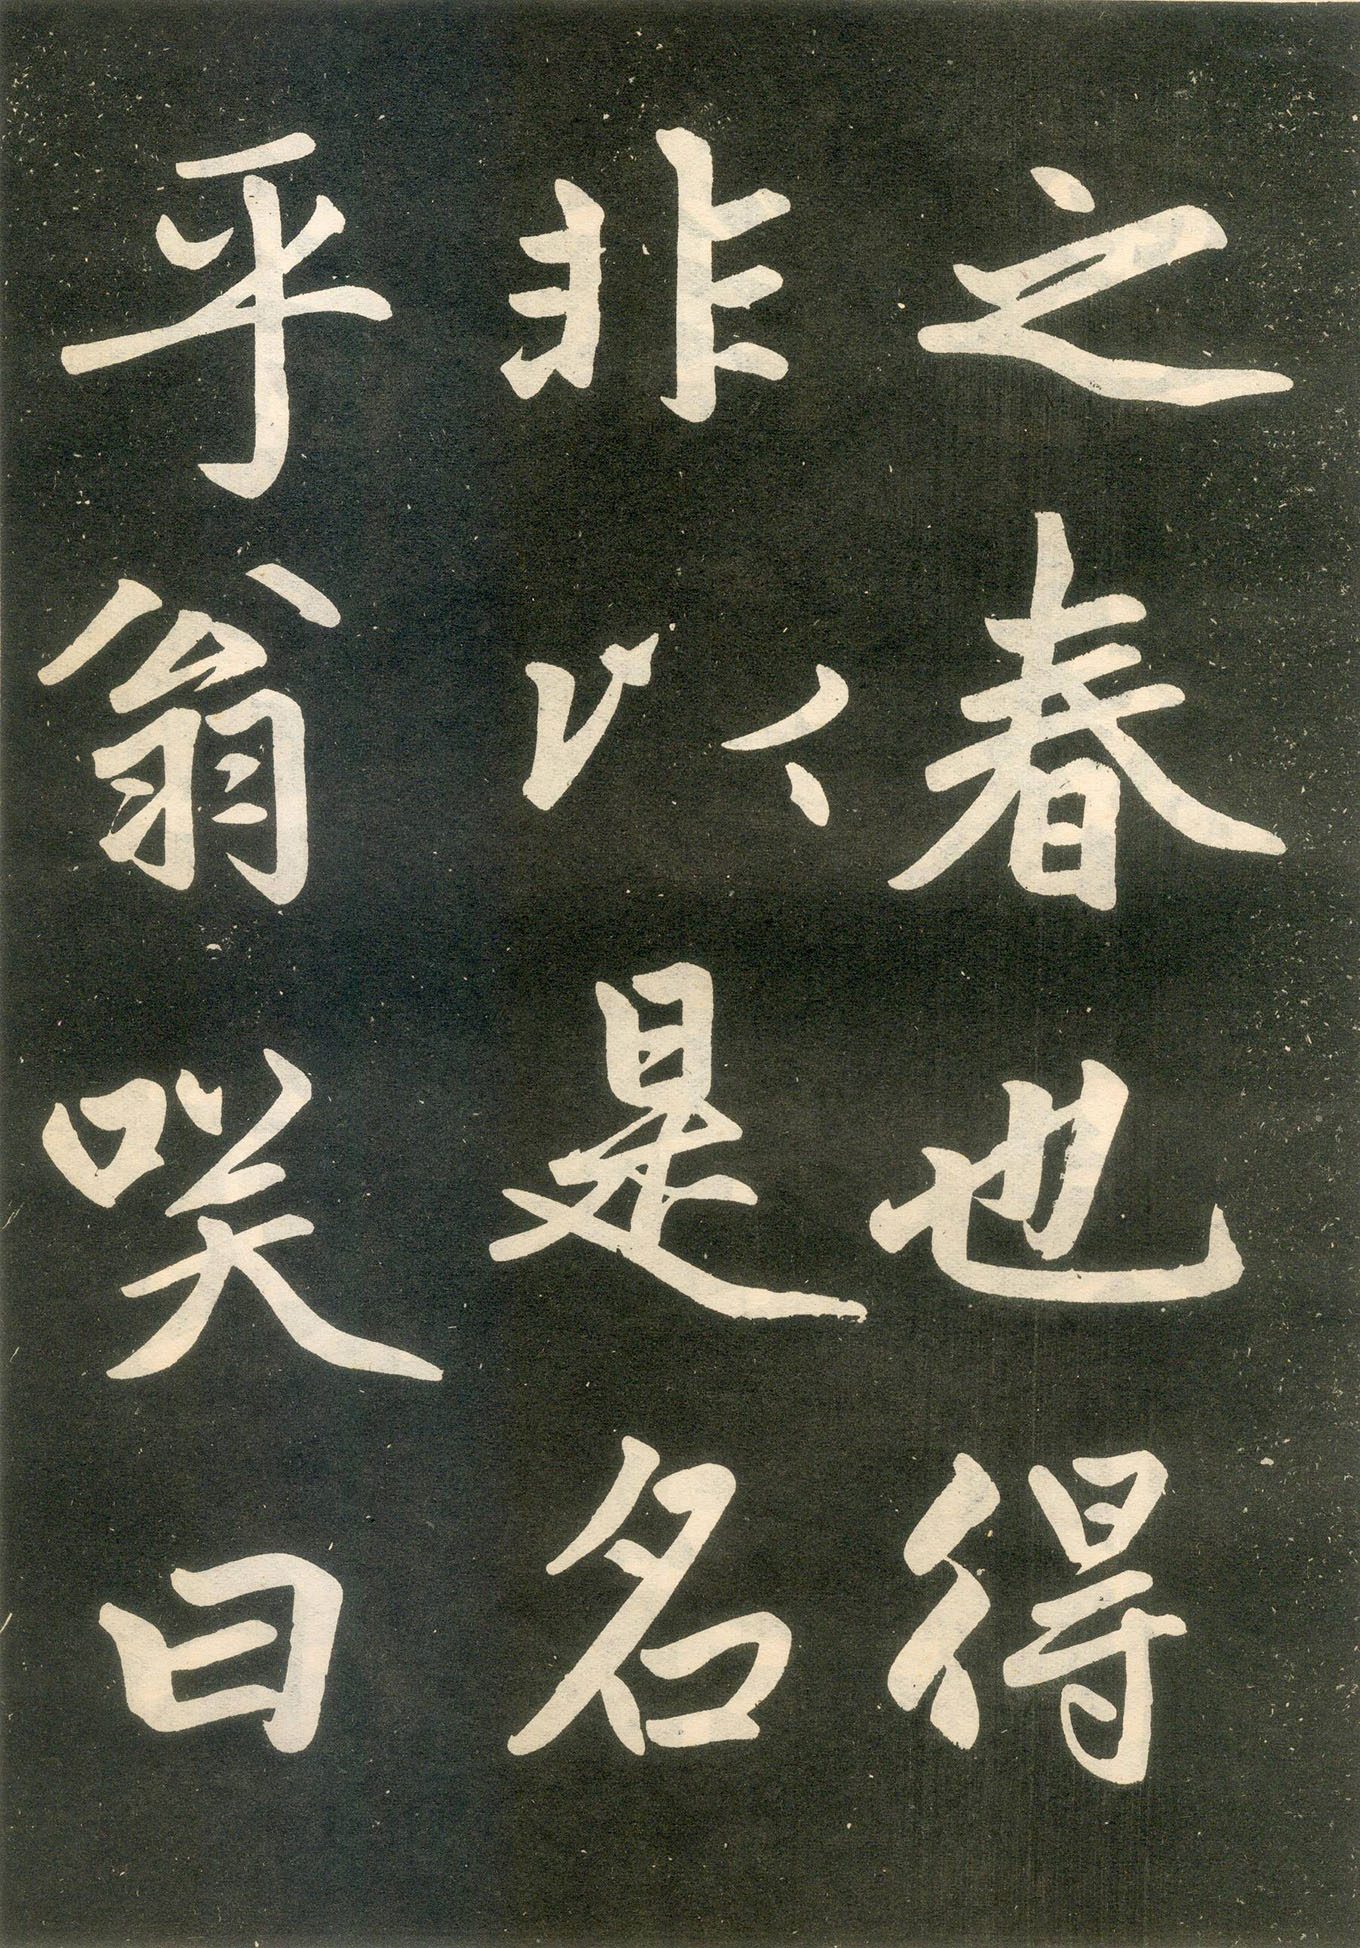 之春也得
非以是名
乎翁咲曰